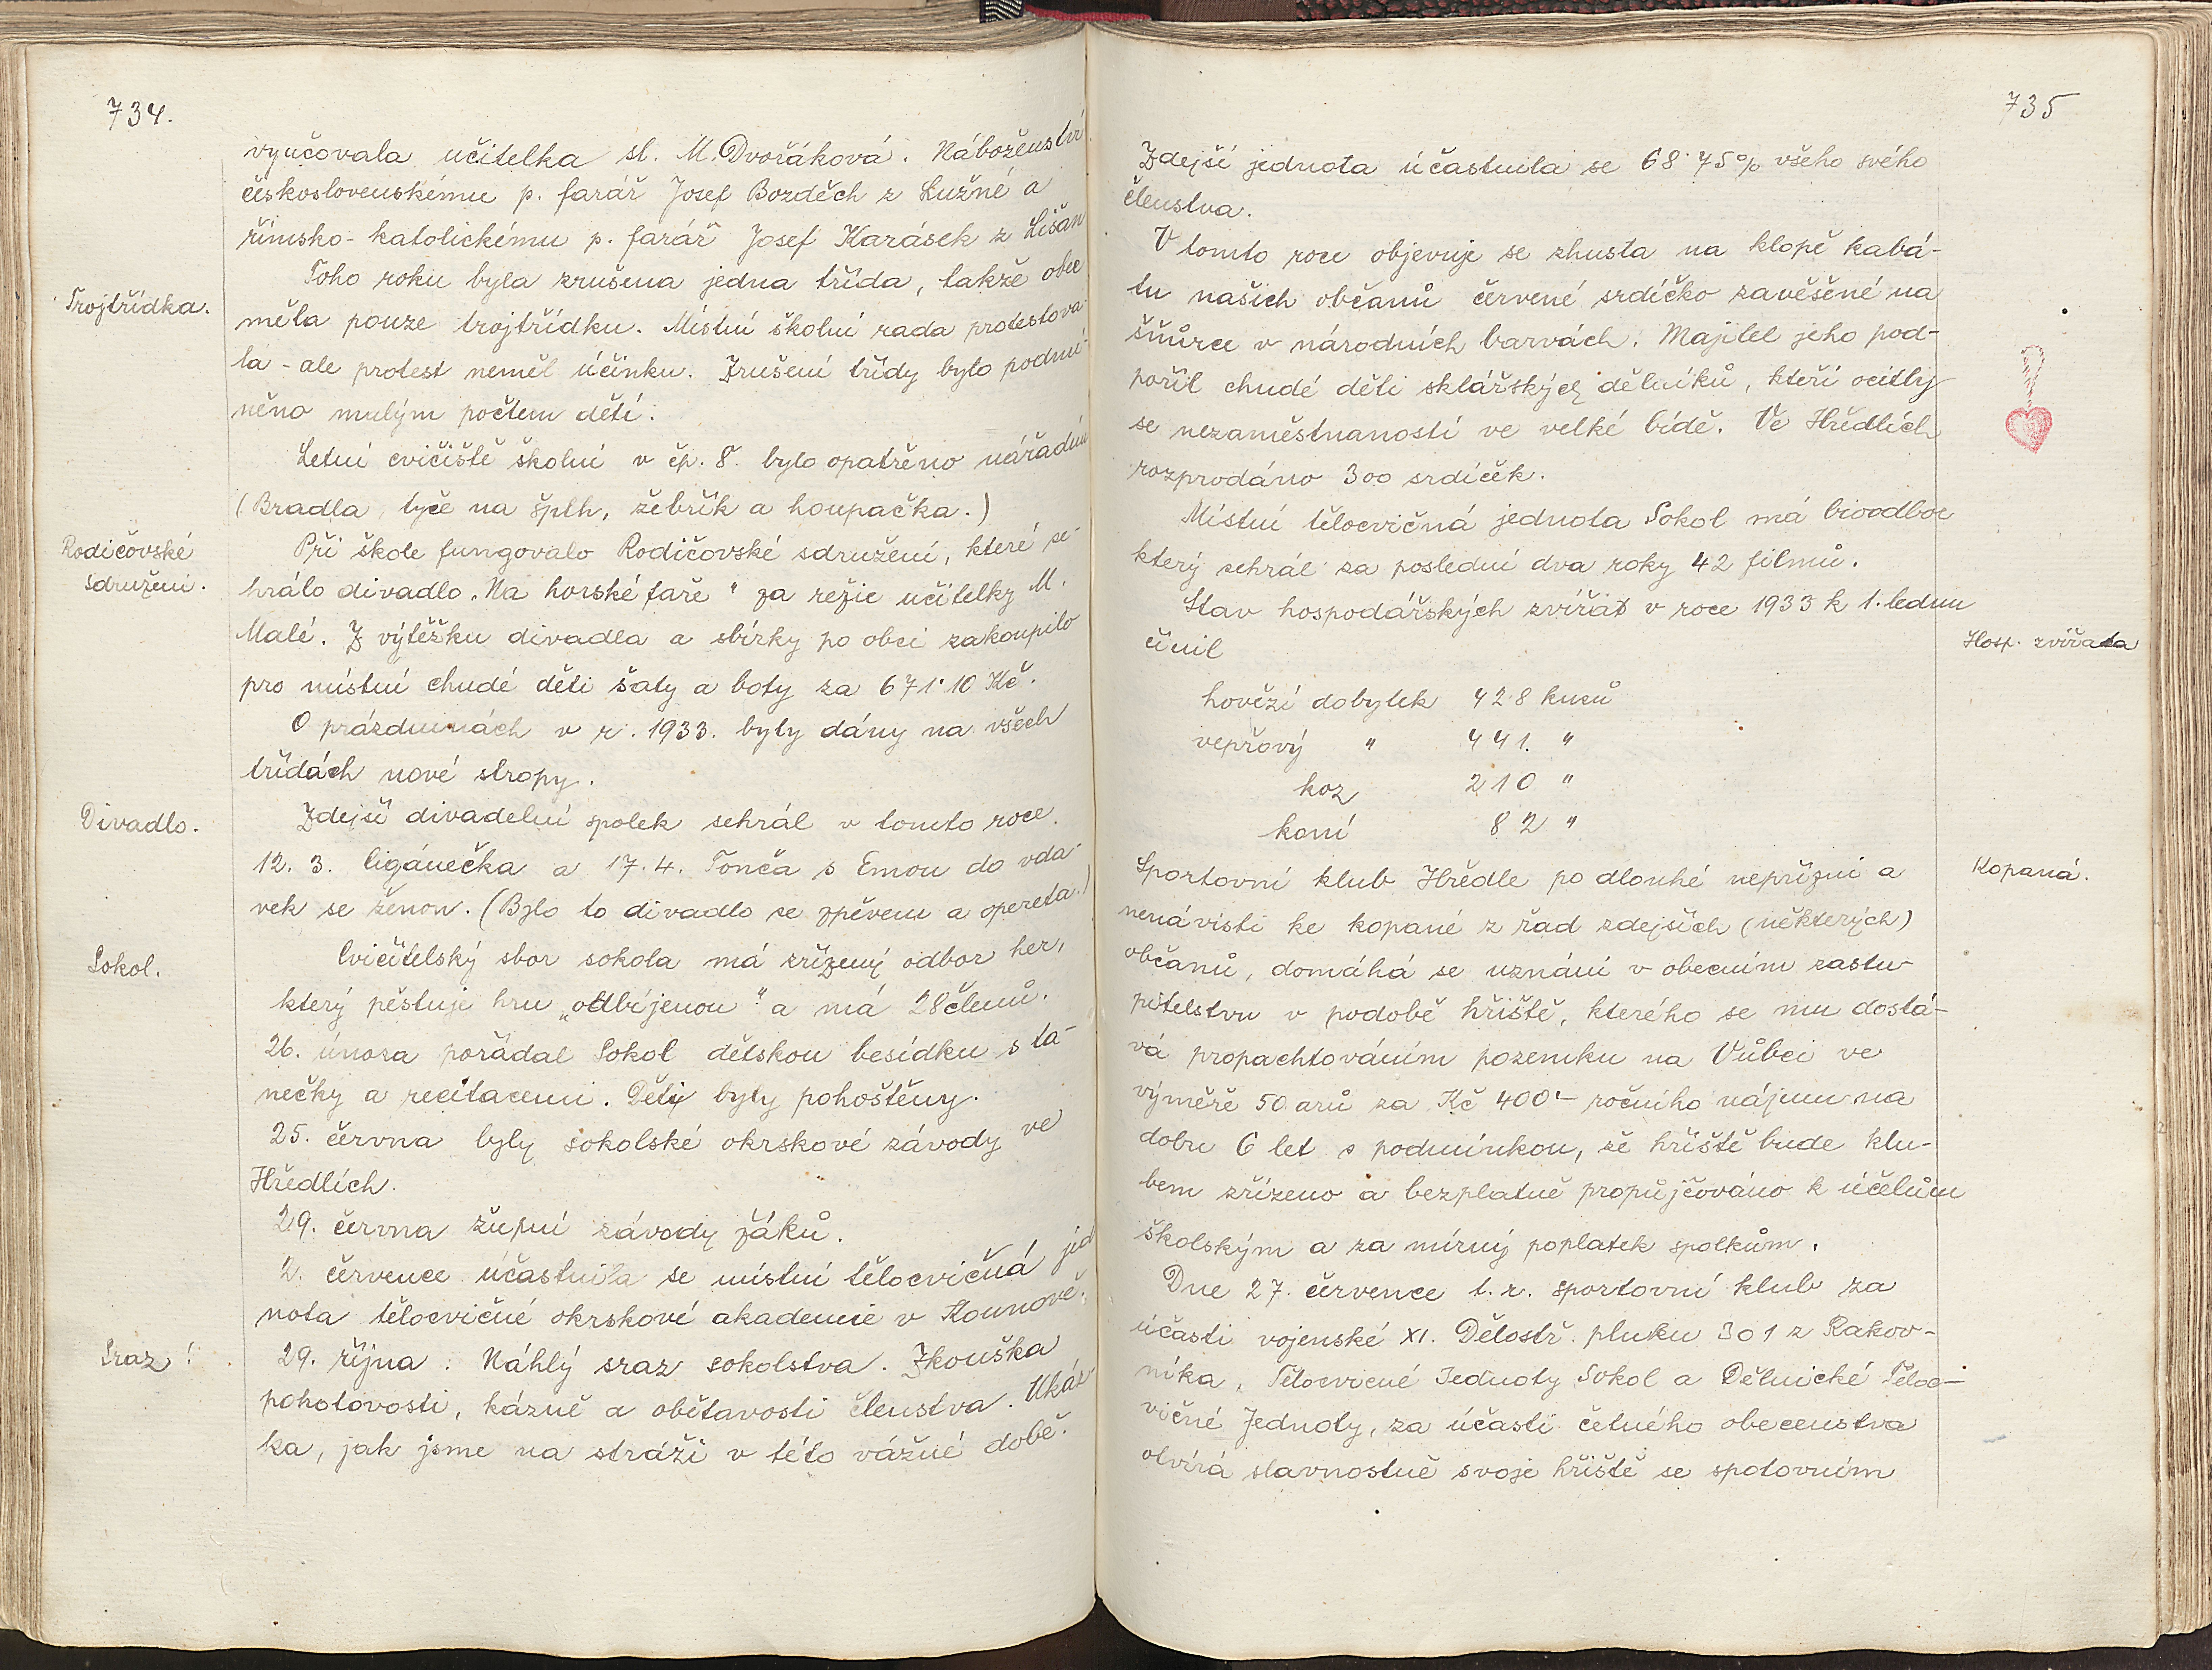 734.
vyučovala učitelka sl. M. Dvořáková. Náboženství
československému p. farář Josef Bozděch z Lužné a
římsko-katolickému p. farář Josef Karásek z Lišan
Toho roku byla zrušena jedna třída, takže obec
Trojtřídka.
měla pouze trojtřídku. Místní školní rada protestova-
la - ale protest neměl účinku. Zrušení třídy bylo podmí-
něno malým počtem dětí.
Letní cvičiště školní v čp. 8. bylo opatřeno nářadím
(Bradla, tyče na šplh, žebřík a houpačka.)
Rodičovské
sdružení.
Při škole fungovalo Rodičovské sdružení, které se-
hrálo divadlo „Na horské faře" za režie učitelky M.
Malé. Z výtěžku divadla a sbírky po obci zakoupilo
pro místní chudé děti šaty a boty za 671·10 Kč.
O prázdninách v r. 1933. byly dány na všech
třídách nové stropy.
Divadlo.
Zdejší divadelní spolek sehrál v tomto roce.
12. 3. Cigánečka a 17. 4. Tonča s Emou do vdá-
vek se ženou. (Bylo to divadlo se zpěvem a opereta.)
Sokol.
Cvičitelský sbor sokola má zřízený odbor her,
který pěstuje hru „odbíjenou" a má 28 členů.
26. února pořádal Sokol dětskou besídku s ta-
nečky a recitacemi. Děti byly pohoštěny.
25. června byly sokolské okrskové závody ve
Hředlích.
29. června župní závody žáků.
2. července účastnila se místní tělocvičná jed
nota tělocvičné okrskové akademie v Kounově.
Sraz!
29. října: Náhlý sraz sokolstva. Zkouška
pohotovosti, kázně a obětavosti členstva. Ukáz-
ka, jak jsme na stráži v této vážné době.
735
Zdejší jednota účastnila se 68·75% všeho svého
členstva.
V tomto roce objevuje se zhusta na klopě kabá-
tu našich občanů červené srdíčko zavěšené na
šňůrce v národních barvách. Majitel jeho pod-
pořil chudé děti sklářských dělníků, kteří ocitly
se nezaměstnaností ve velké bídě. Ve Hředlích
rozprodáno 300 srdíček.
Místní tělocvičná jednota Sokol má bioodbor
který sehrál za poslední dva roky 42 filmů.
Stav hospodářských zvířat v roce 1933 k 1. lednu
činil
Hosp. zvířata
hovězí dobytek 428 kusů
vepřový " 441. "
koz 210 "
koní 82 "
Sportovní klub Hředle po dlouhé nepřízni a
Kopaná.
nenávisti ke kopané z řad zdejších (některých)
občanů, domáhá se uznání v obecním zastu-
pitelstvu v podobě hřiště, kterého se mu dostá-
vá propachtováním pozemku na Vůbci ve
výměře 50 arů za Kč 400'- ročního nájmu na
dobu 6 let s podmínkou, že hřiště bude klu-
bem zřízeno a bezplatně propůjčováno k účelům
školským a za mírný poplatek spolkům.
Dne 27. července t. r. sportovní klub za
účasti vojenské XI. Dělostř. pluku 301 z Rakov-
níka, Tělocvicné Jednoty Sokol a Dělnické Těloc-
vičné Jednoty, za účasti četného obecenstva
otvírá slavnostně svoje hřiště se spotovním